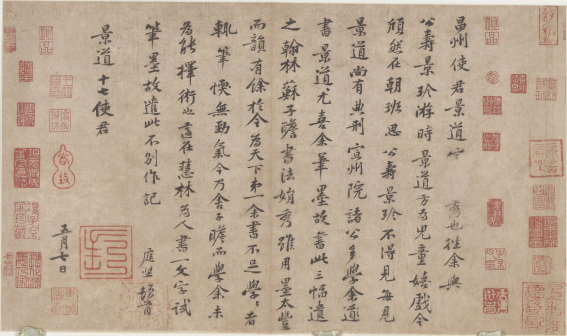 昌州使君景道宗秀也往余與
公壽景珍游時景道方為兒童嬉戲今
頎然在朝班思公壽景珍不得見每見
景道尚有典刑宣州院諸公多學余道
書景道尤喜余筆墨故書此三幅遺
之翰林蘇子瞻書法娟秀雖用墨太豐
而韻有餘於今為天下第一余書不足學學者
輒筆愞無勁氣今乃舍子瞻而學余未
為能擇術也適在慧林為人書一文字試
筆墨故遣此不別作記
庭堅頓首
景道十七使君
五月七日